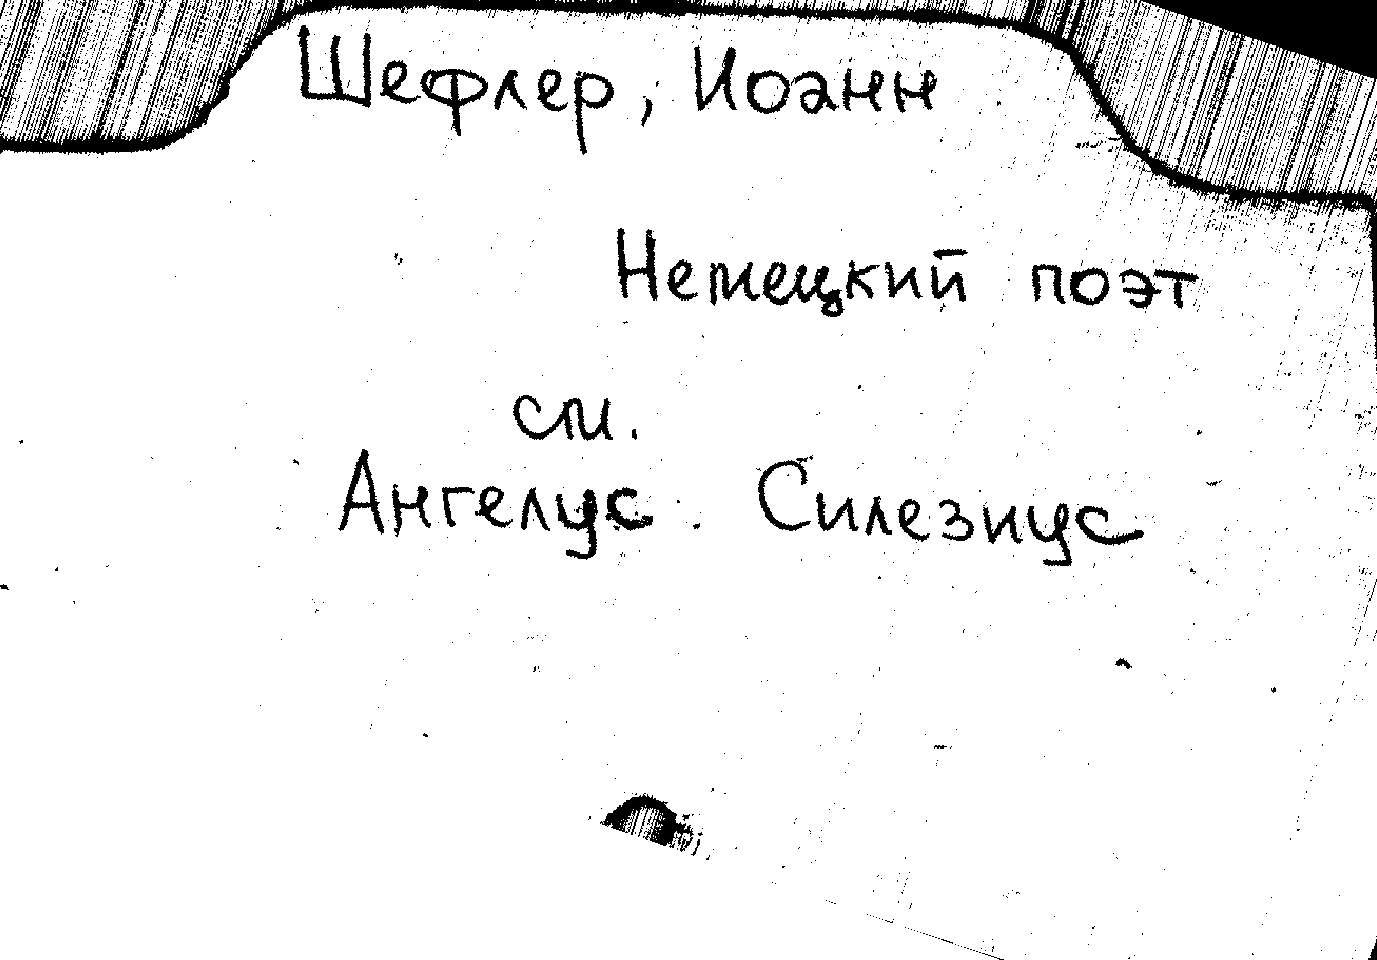 Шефлер, Иоанн
Немецкий поэт
см.
Ангелус Силезиус